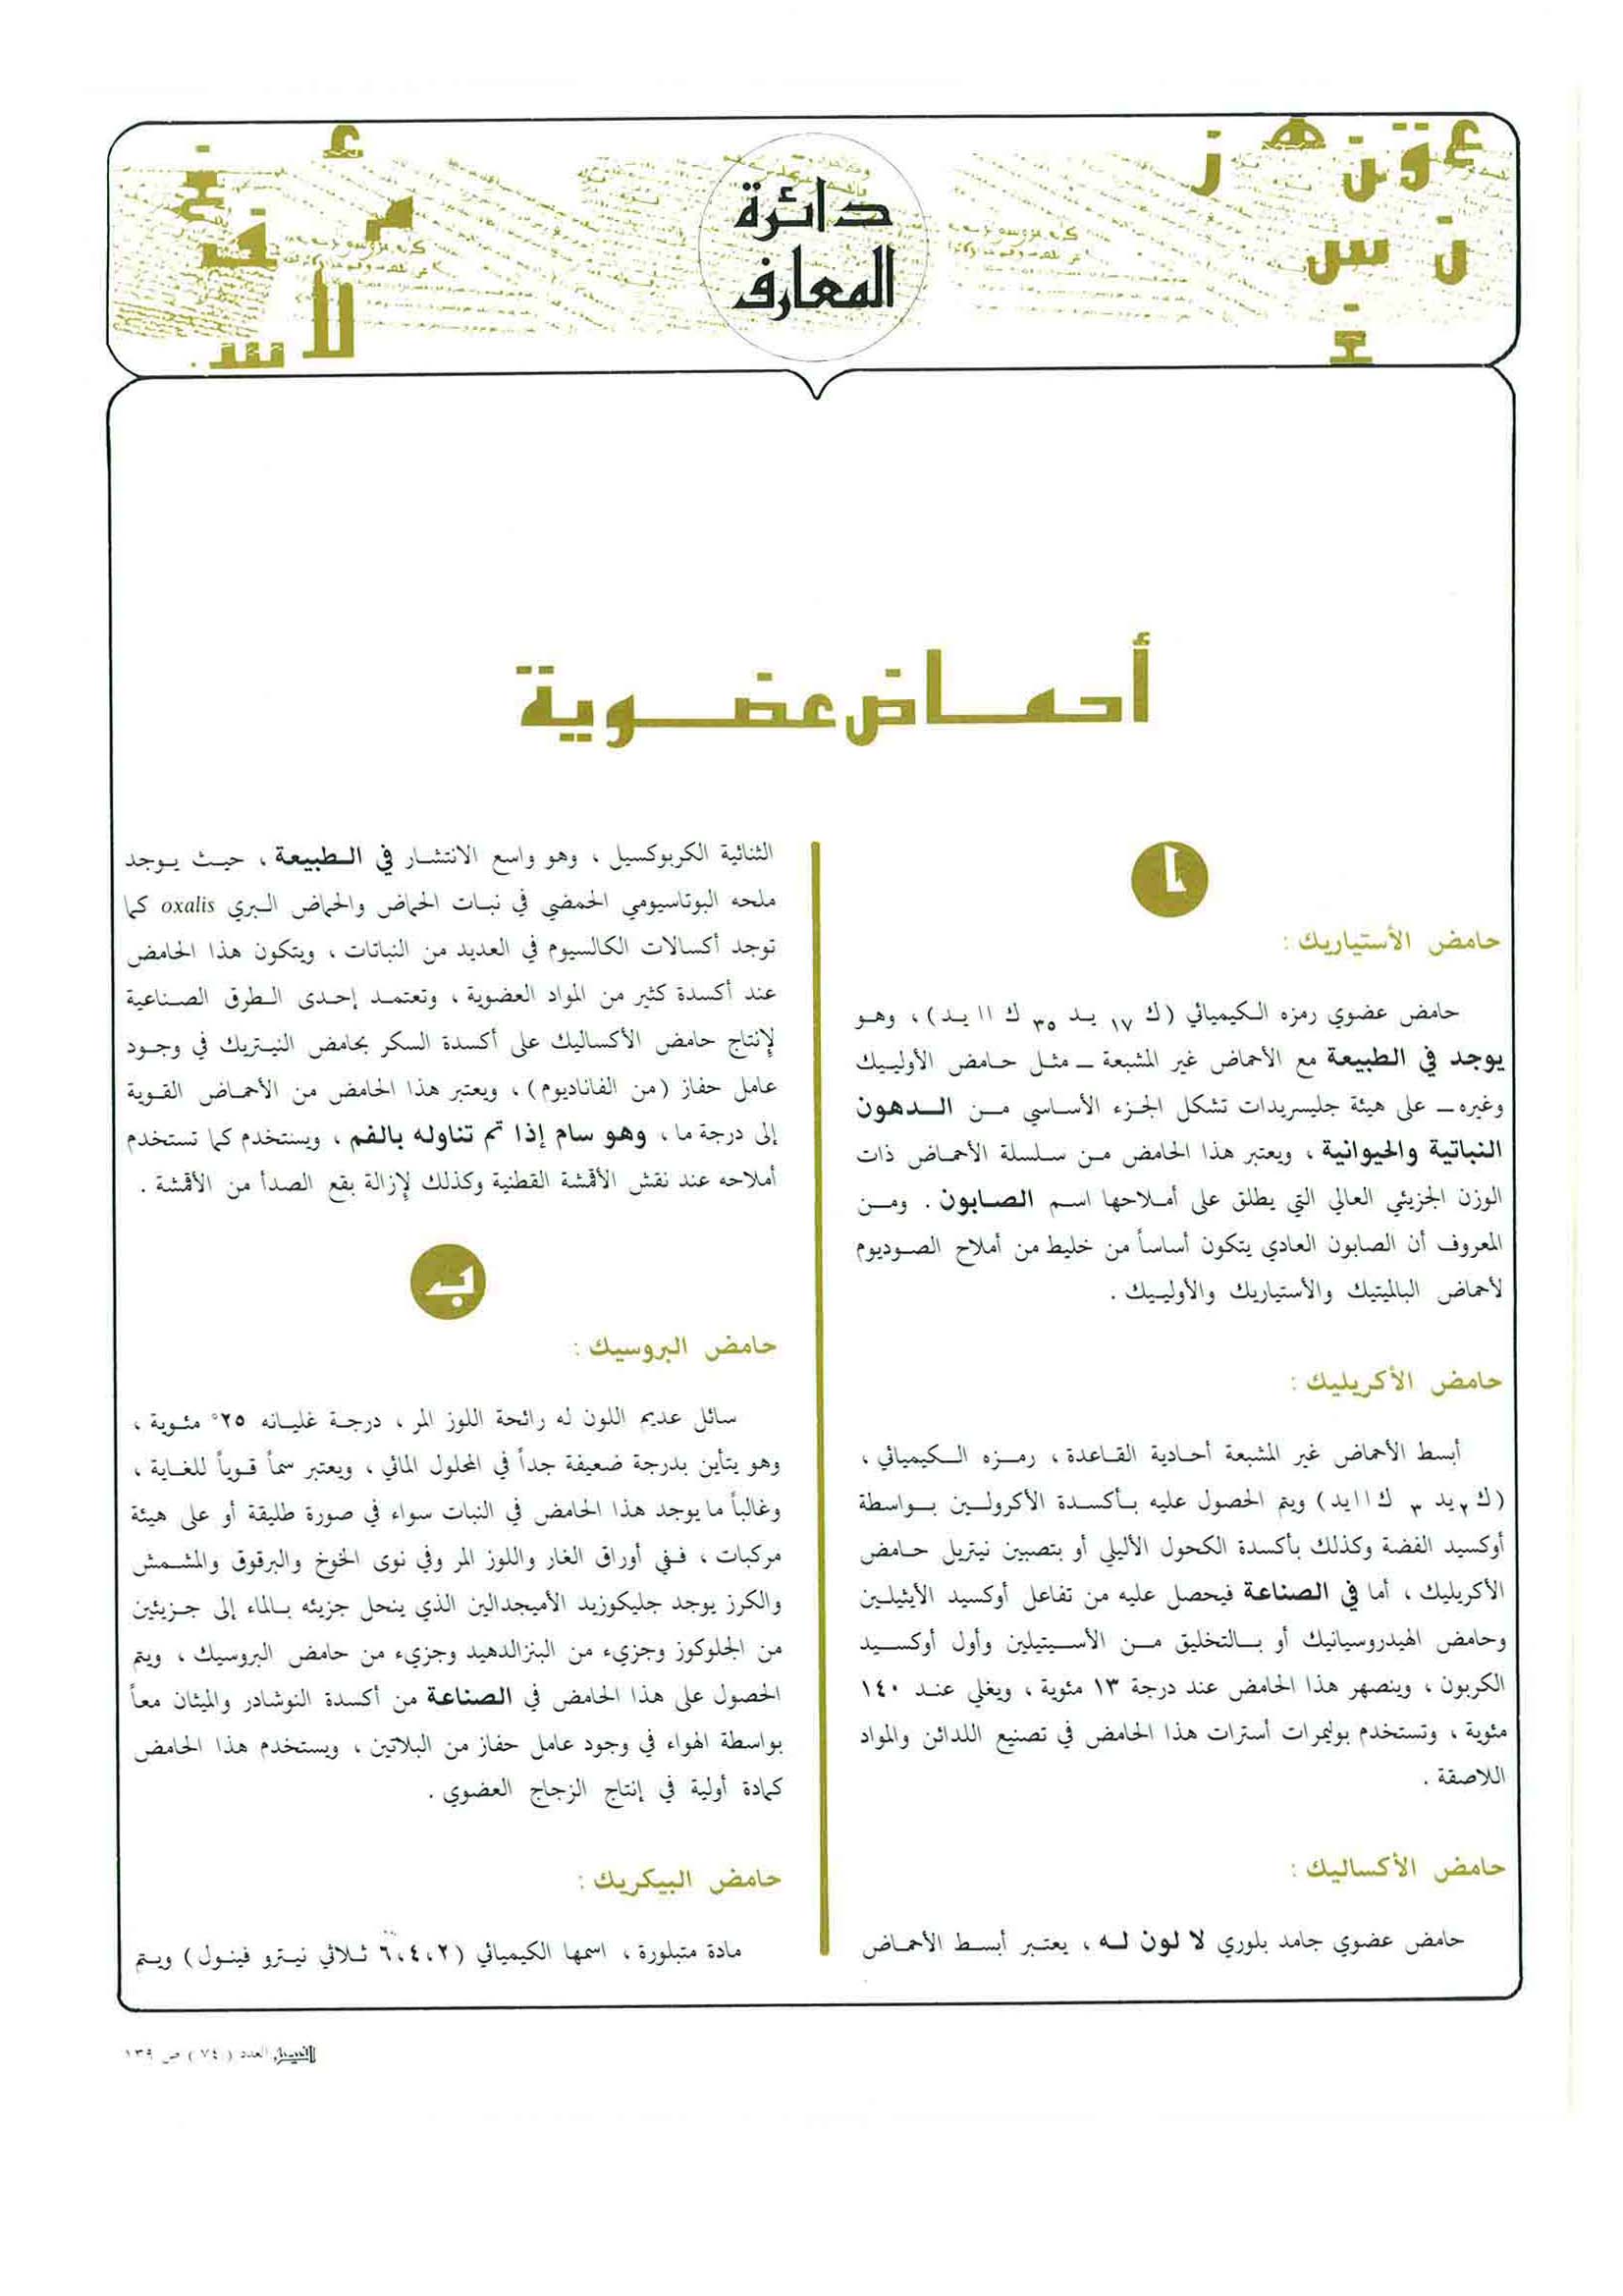 دائرة
المعارف
أحماض عضوية
أ
حامض الأستياريك :
حامض عضوي رمزه الكيميائي (ك ١٧ يد ٣٥ ك ا ا يد) ، وهو
يوجد في الطبيعة مع الأحماض غير المشبعة ــ مثل حامض الأولييك
وغيره ــ على هيئة جليسريدات تشكل الجزء الأساسي من الدهون
النباتية والحيوانية ، ويعتبر هذا الحامض من سلسلة الأحماض ذات
الوزن الجزيئي العالي التي يطلق على أملاحها اسم الصابون . ومن
المعروف أن الصابون العادي يتكون أساساً من خليط من أملاح الصوديوم
لأحماض البالميتيك والأستياريك والأولييك .
حامض الأكريليك :
أبسط الأحماض غير المشبعة أحادية القاعدة ، رمزه الكيميائي ،
(ك ٢ يد ٣ ك ا ا يد) ويتم الحصول عليه بأكسدة الأكرولين بواسطة
أوكسيد الفضة وكذلك بأكسدة الكحول الأليلي أو بتصبين نيتريل حامض
الأكريليك ، أما في الصناعة فيحصل عليه من تفاعل أوكسيد الأيثيلين
وحامض الهيدروسيانيك أو بالتخليق من الأسيتيلين وأول أوكسيد
الكربون ، وينصهر هذا الحامض عند درجة ١٣ مئوية ، ويغلي عند ١٤٠
مئوية ، وتستخدم بوليمرات أسترات هذا الحامض في تصنيع اللدائن والمواد
اللاصقة .
حامض الأكساليك :
حامض عضوي جامد بلوري لا لون له ، يعتبر أبسط الأحماض
الثنائية الكربوكسيل ، وهو واسع الانتشار في الطبيعة ، حيث يوجد
ملحه البوتاسيومي الحمضي في نبات الحماض والحماض البري oxalis كما
توجد أكسالات الكالسيوم في العديد من النباتات ، ويتكون هذا الحامض
عند أكسدة كثير من المواد العضوية ، وتعتمد إحدى الطرق الصناعية
لإنتاج حامض الأكساليك على أكسدة السكر بحامض النيتريك في وجود
عامل حفاز (من الفاناديوم) ، ويعتبر هذا الحامض من الأحماض القوية
إلى درجة ما ، وهو سام إذا تم تناوله بالفم ، ويستخدم كما تستخدم
أملاحه عند نقش الأقمشة القطنية وكذلك لإزالة بقع الصدأ من الأقمشة .
ب
حامض البروسيك :
سائل عديم اللون له رائحة اللوز المر ، درجة غليانه ٢٥° مئوية ،
وهو يتأين بدرجة ضعيفة جداً في المحلول المائي ، ويعتبر سماً قوياً للغاية ،
وغالباً ما يوجد هذا الحامض في النبات سواء في صورة طليقة أو على هيئة
مركبات ، ففي أوراق الغار واللوز المر وفي نوى الخوخ والبرقوق والمشمش
والكرز يوجد جليكوزيد الأميجدالين الذي ينحل جزيئه بالماء إلى جزيئين
من الجلوكوز وجزيء من البنزالدهيد وجزيء من حامض البروسيك ، ويتم
الحصول على هذا الحامض في الصناعة من أكسدة النوشادر والميثان معاً
بواسطة الهواء في وجود عامل حفاز من البلاتين ، ويستخدم هذا الحامض
كمادة أولية في إنتاج الزجاج العضوي .
حامض البيكريك :
مادة متبلورة ، اسمها الكيميائي (٢،٤،٦ ثلاثي نيترو فينول) ويتم
الفيصل العدد (٧٤) ص ١٣٩